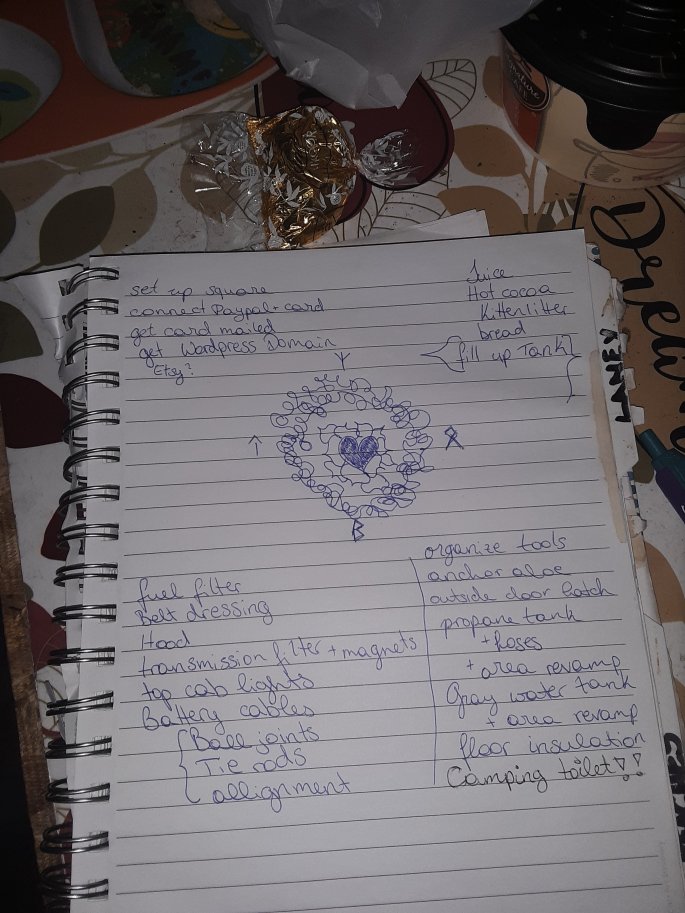 set up square
connect Paypal + card
get card mailed
get Wordpress Domain
Etsy?
Juice
Hot cocoa
Kitten litter
bread
fill up Tank
ᛉ
↑
ᛟ
B
fuel filter
Belt dressing
Hood
transmission filter + magnets
top cab lights
Battery cables
Ball joints
Tie rods
allignment
organize tools
anchor aloe
outside door latch
propane tank
+ hoses
+ area revamp
Gray water tank
+ area revamp
floor insulation
Camping toilet!!